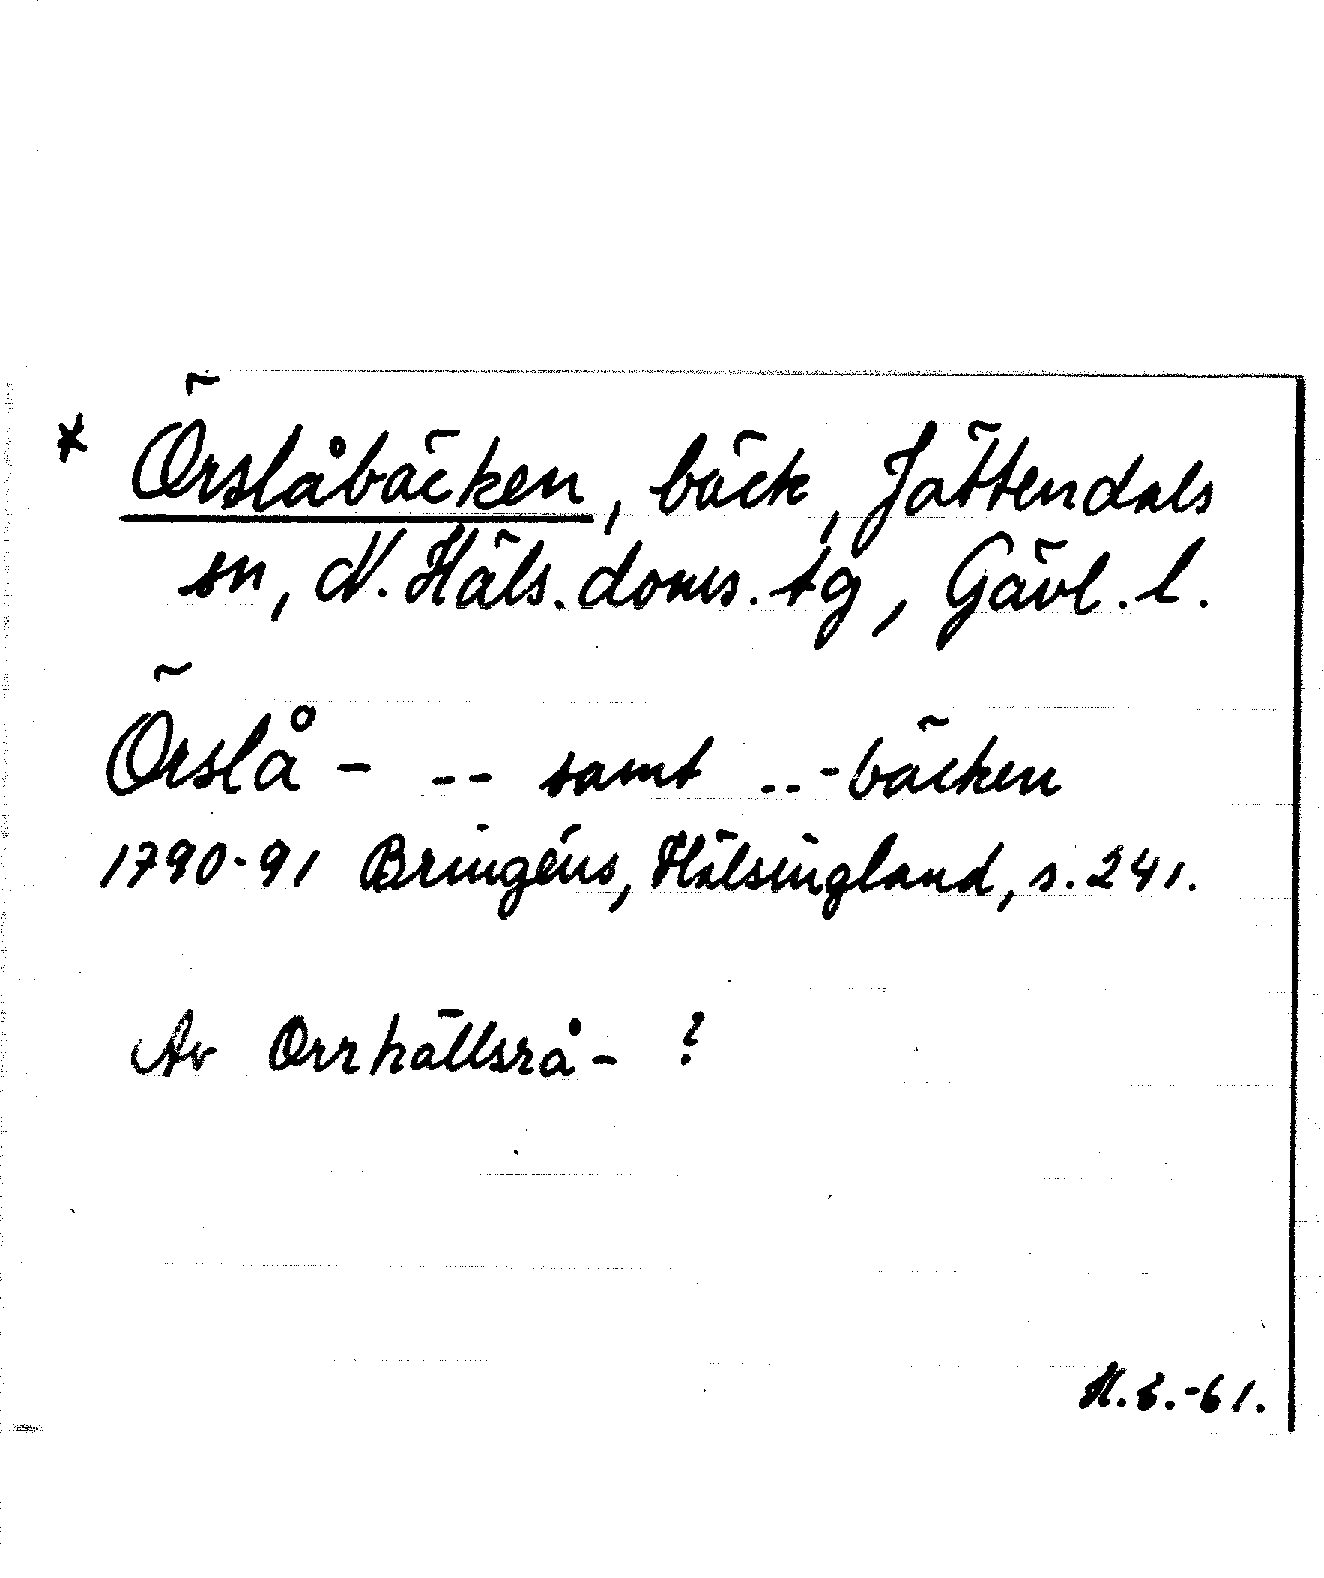 * Örslåbäcken, bäck, Jättendals
sn, N. Häls. doms. tg, Gävl. l.
Örslå- -- samt ..-bäcken
1790-91 Bringéus, Hälsingland, s. 241.
Av Orrhällsrå- ?
H.E.-61.